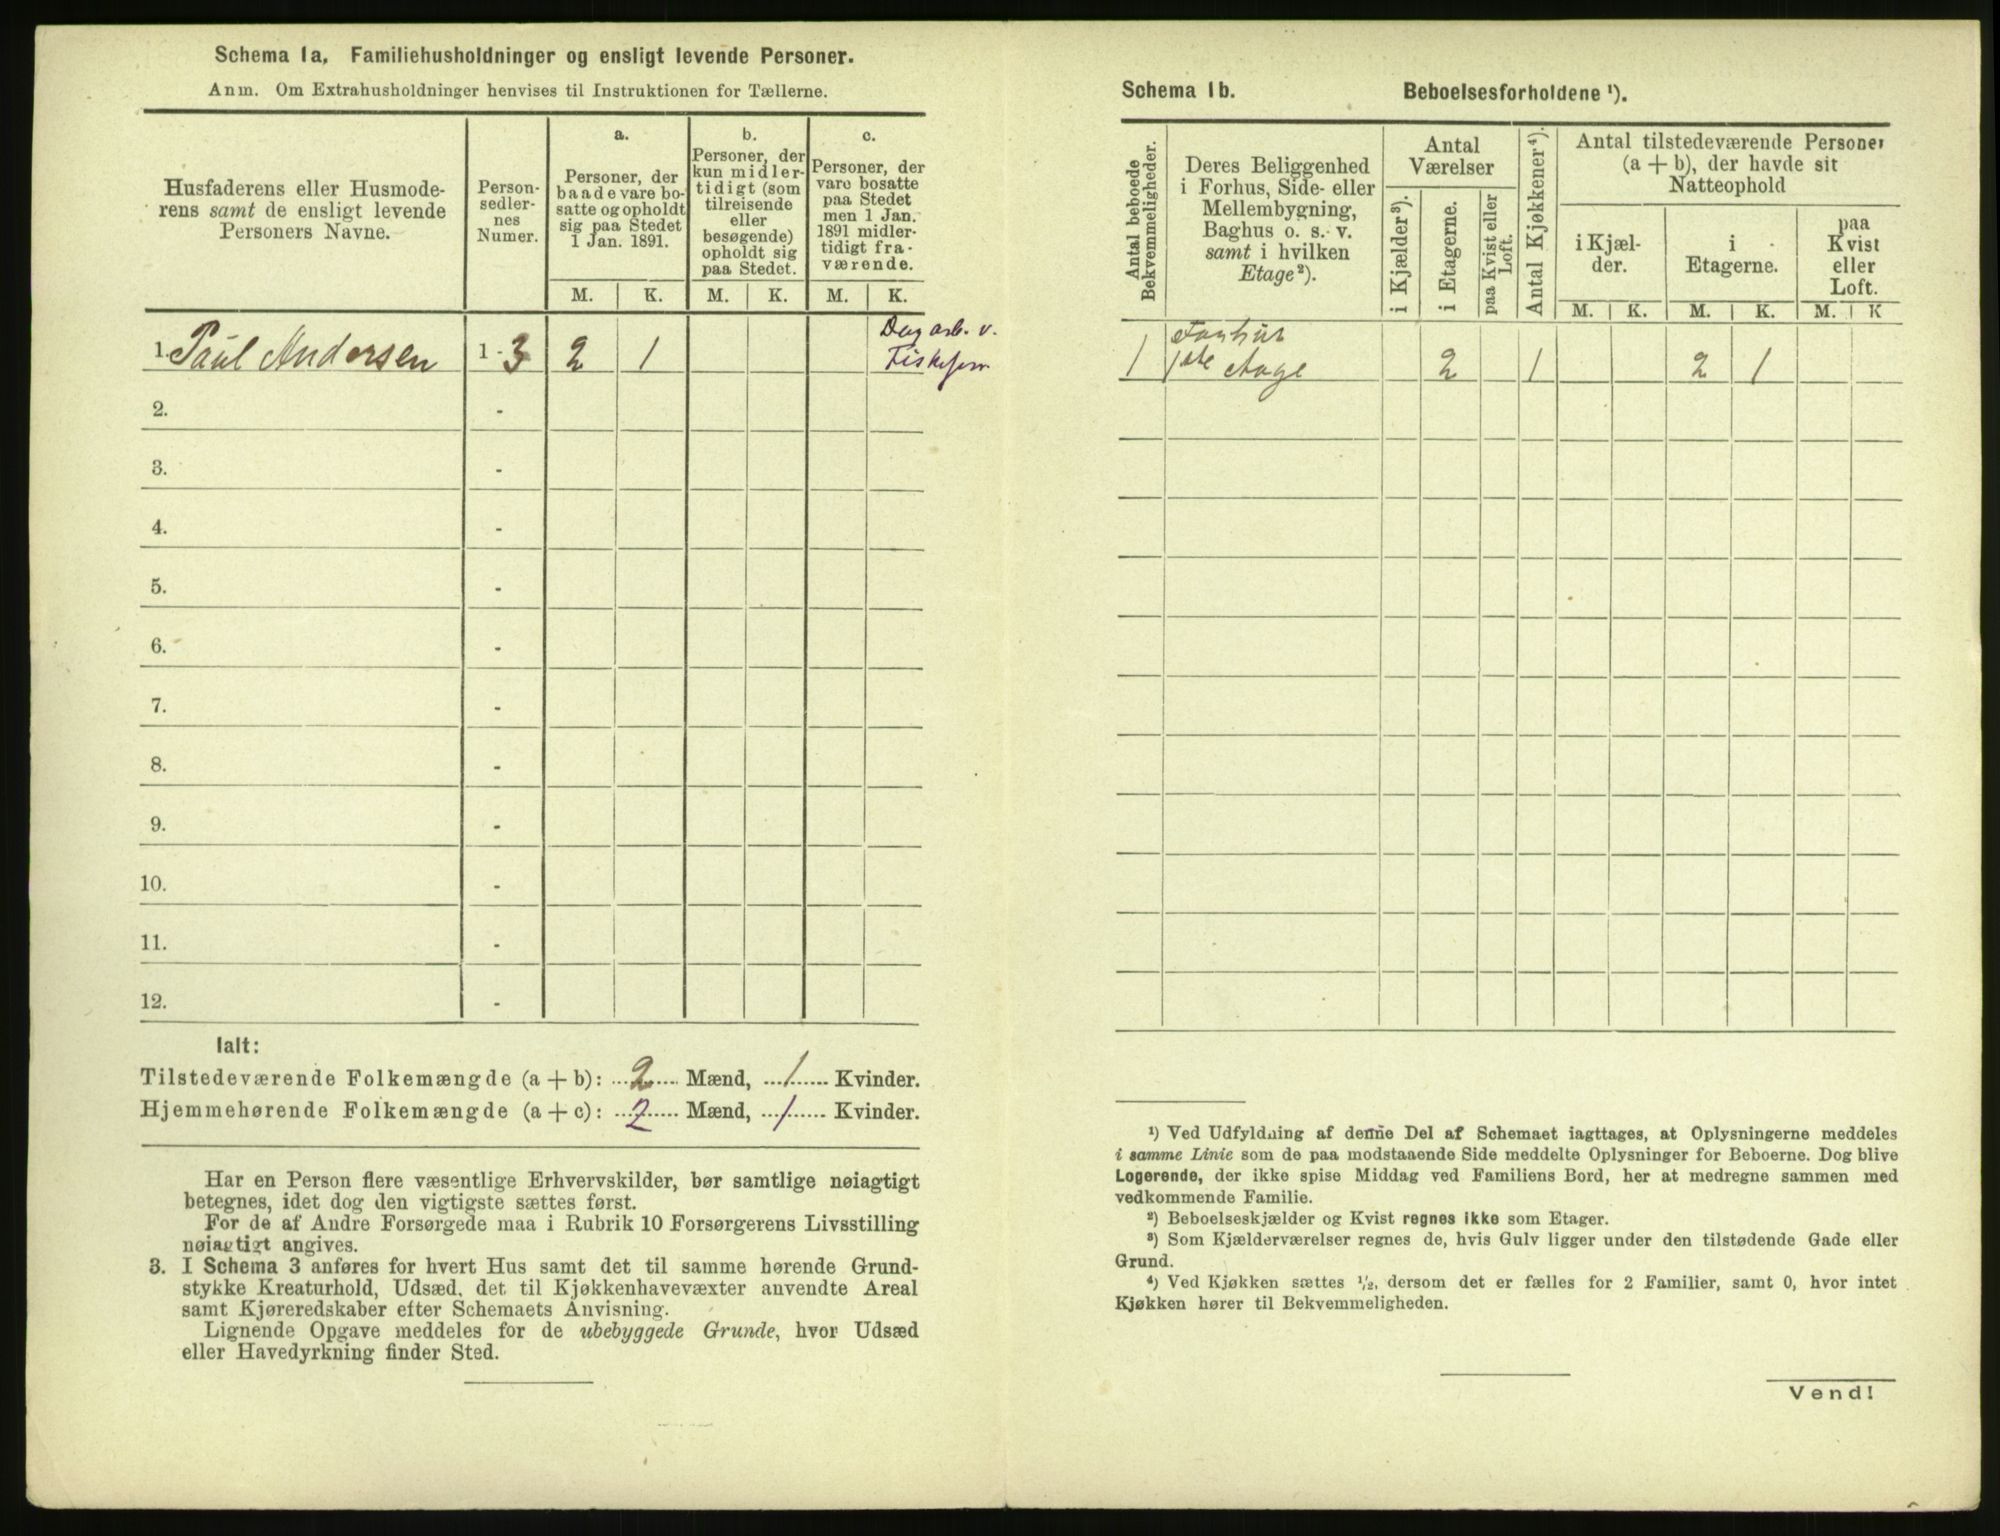 Schema 1a. Familiehusholdninger og ensligt levende Personer.
Anm. Om Extrahusholdninger henvises til Instruktionen for Tællerne.
Husfaderens eller Husmode-
rens samt de ensligt levende
Personers Navne.
Person-
sedler-
nes
Numer.
a.
Personer, der
baade vare bo-
satte og opholdt
sig paa Stedet
1 Jan. 1891.
b.
Personer, der
kun midler-
tidigt (som
tilreisende
eller
besøgende)
opholdt sig
paa Stedet.
c.
Personer, der
vare bosatte
paa Stedet
men 1 Jan.
1891 midler-
tidigt fra-
værende.
M. K. M. K. M. K.
Dagarb. v.
1. Paul Andersen 1 - 3 2 1 Fiskeforr
2. -
3. -
4. -
5. -
6. -
7. -
8. -
9. -
10. -
11. -
12. -
Ialt:
Tilstedeværende Folkemængde (a + b): 2 Mænd, 1 Kvinder.
Hjemmehørende Folkemængde (a + c): 2 Mænd, 1 Kvinder.
Har en Person flere væsentlige Erhvervskilder, bør samtlige nøiagtigt
betegnes, idet dog den vigtigste sættes først.
For de af Andre Forsørgede maa i Rubrik 10 Forsørgerens Livsstilling
nøiagtigt angives.
3. I Schema 3 anføres for hvert Hus samt det til samme hørende Grund-
stykke Kreaturhold, Udsæd, det til Kjøkkenhavevæxter anvendte Areal
samt Kjøreredskaber efter Schemaets Anvisning.
Lignende Opgave meddeles for de ubebyggede Grunde, hvor Udsæd
eller Havedyrkning finder Sted.
Schema 1b. Beboelsesforholdene ¹).
Antal beboede
Bekvemmeligheder.
Deres Beliggenhed
i Forhus, Side- eller
Mellembygning,
Baghus o. s. v.
samt i hvilken
Etage²).
Antal
Værelser
i Kjælder³).
i Etagerne.
paa Kvist eller
Loft.
Antal Kjøkkener⁴).
Antal tilstedeværende Personer
(a + b), der havde sit
Natteophold
i Kjæl-
der.
i
Etagerne.
paa
Kvist
eller
Loft.
M. K. M. K. M. K
Forhus
1 1ste Etage 2 1 2 1
¹) Ved Udfyldning af denne Del af Schemaet iagttages, at Oplysningerne meddeles
i samme Linie som de paa modstaaende Side meddelte Oplysninger for Beboerne. Dog blive
Logerende, der ikke spise Middag ved Familiens Bord, her at medregne sammen med
vedkommende Familie.
²) Beboelseskjælder og Kvist regnes ikke som Etager.
³) Som Kjælderværelser regnes de, hvis Gulv ligger under den tilstødende Gade eller
Grund.
⁴) Ved Kjøkken sættes ¹/₂, dersom det er fælles for 2 Familier, samt 0, hvor intet
Kjøkken hører til Bekvemmeligheden.
Vend!